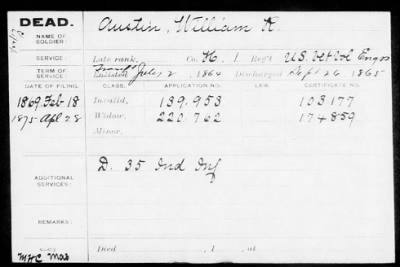 DEAD.
Austin, William R.
NAME OF SOLDIER:
SERVICE:
Late rank, Co. H. 1 Reg't U.S. Vet Vol Engrs
TERM OF SERVICE:
Enlisted July 2, 1864 Discharged Sept 26, 1865
DATE OF FILING. CLASS. APPLICATION NO. LAW. CERTIFICATE NO.
1869 Feb 18 Invalid, 139.953 103177
1875 Apl 28 Widow, 220.762 174859
Minor,
ADDITIONAL SERVICES:
D. 35 Ind Inf
REMARKS:
Died , 1 , at